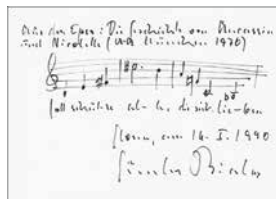 Aus der Oper: Die Geschichte von Aucassin
und Nicolette (UA München 1970)
Gott schütze al- le, die sich lie- ben
am 14. I. 1990
Günter Bialas